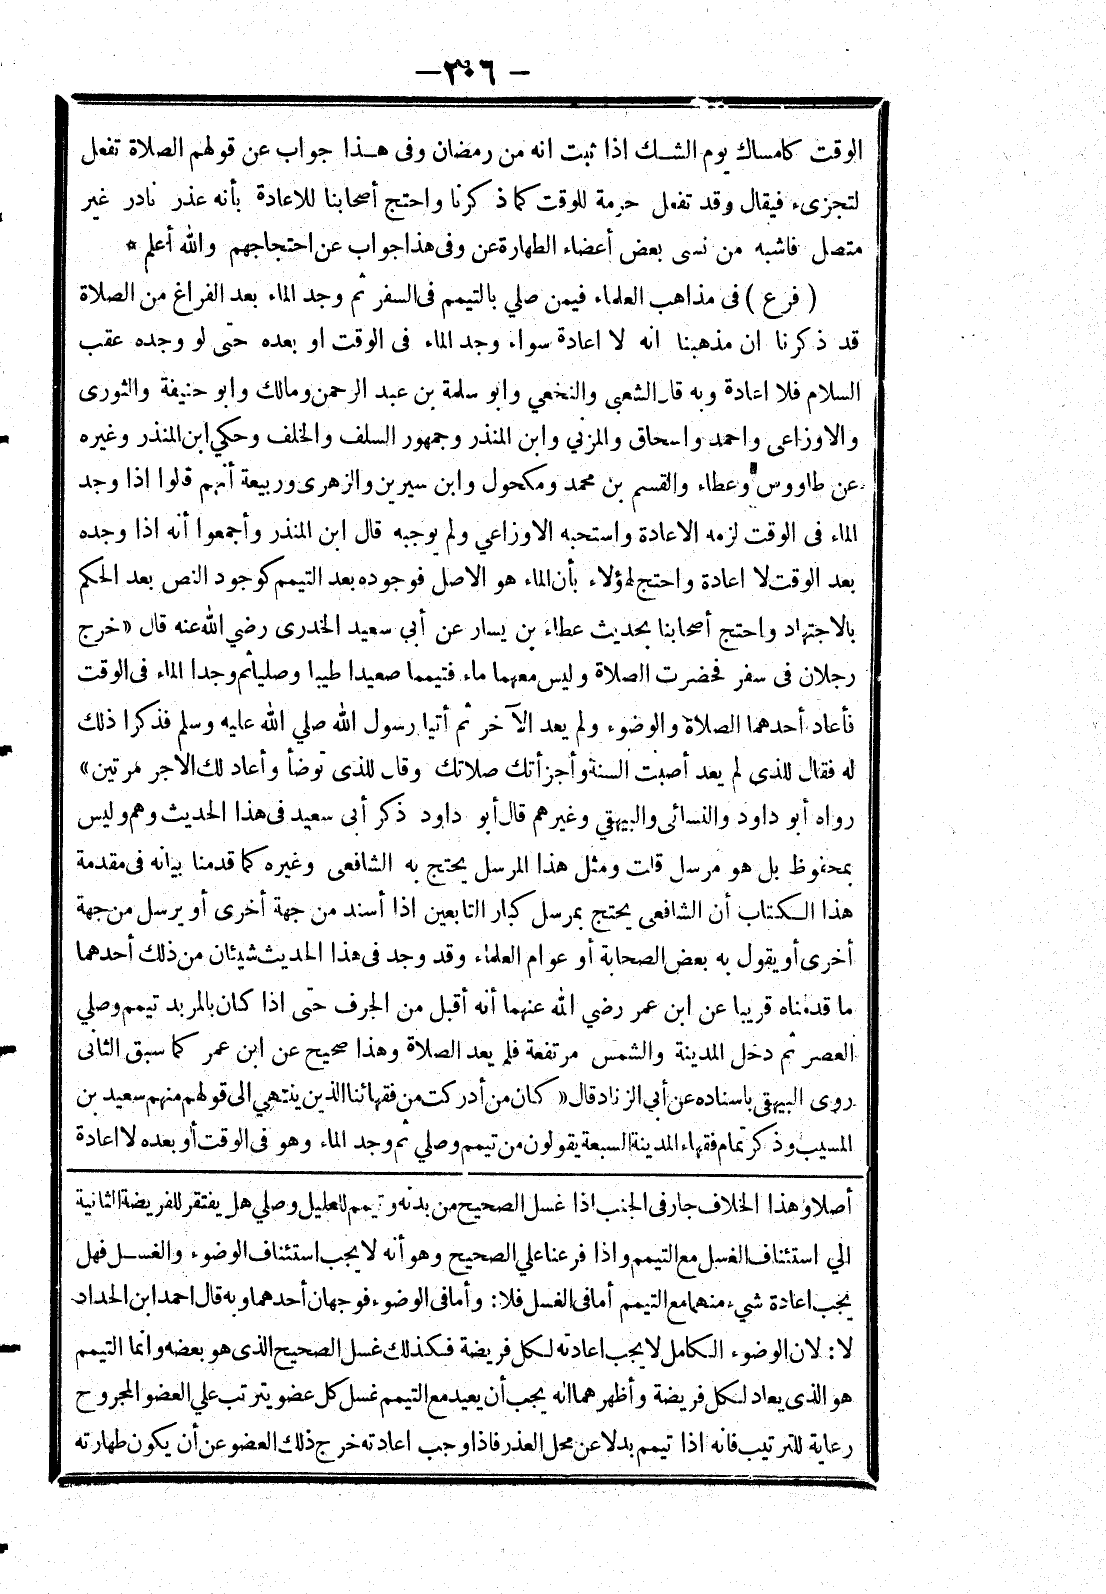 — ٣٠٦ —
الوقت كامساك يوم الشك اذا ثبت انه من رمضان وفى هذا جواب عن قولهم الصلاة تفعل
لتجزىء فيقال وقد تفعل حرمة للوقت كما ذكرنا واحتج أصحابنا للاعادة بأنه عذر نادر غير
متصل فاشبه من نسى بعض أعضاء الطهارةعن وفى هذاجواب عن احتجاجهم والله أعلم *
( فرع ) فى مذاهب العلماء فيمن صلي بالتيمم فى السفر ثم وجد الماء بعد الفراغ من الصلاة
قد ذكرنا ان مذهبنا انه لا اعادة سواء وجد الماء فى الوقت او بعده حتى لو وجده عقب
السلام فلا اعادة وبه قال الشعبى والنخعي وابو سلمة بن عبد الرحمن ومالك وابو حنيفة والثورى
والاوزاعى واحمد واسحاق والمزني وابن المنذر وجمهور السلف والخلف وحكي ابن المنذر وغيره
عن طاووس وعطاء والقسم بن محمد ومكحول وابن سيرين والزهرى وربيعة أنهم قالوا اذا وجد
الماء فى الوقت لزمه الاعادة واستحبه الاوزاعي ولم يوجبه قال ابن المنذر وأجمعوا أنه اذا وجده
بعد الوقت لا اعادة واحتج لهؤلاء بأن الماء هو الاصل فوجوده بعد التيمم كوجود النص بعد الحكم
بالاجتهاد واحتج أصحابنا بحديث عطاء بن يسار عن أبي سعيد الخدرى رضي الله عنه قال «خرج
رجلان فى سفر فحضرت الصلاة وليس معهما ماء فتيمما صعيدا طيبا وصليا ثم وجدا الماء فى الوقت
فأعاد أحدهما الصلاة والوضوء ولم يعد الآخر ثم أتيا رسول الله صلي الله عليه وسلم فذكرا ذلك
له فقال للذى لم يعد أصبت السنة وأجزأتك صلاتك وقال للذى توضأ وأعاد لك الاجر مرتين»
رواه أبو داود والنسائى والبيهقي وغيرهم قال أبو داود ذكر أبى سعيد فى هذا الحديث وهم وليس
بمحفوظ بل هو مرسل قلت ومثل هذا المرسل يحتج به الشافعى وغيره كما قدمنا بيانه فى مقدمة
هذا الكتاب أن الشافعى يحتج بمرسل كبار التابعين اذا أسند من جهة أخرى أو يرسل من جهة
أخرى أو يقول به بعض الصحابة أو عوام العلماء وقد وجد فى هذا الحديث شيئان من ذلك أحدهما
ما قدمناه قريبا عن ابن عمر رضي الله عنهما أنه أقبل من الجرف حتى اذا كان بالمربد تيمم وصلي
العصر ثم دخل المدينة والشمس مرتفعة فلم يعد الصلاة وهذا صحيح عن ابن عمر كما سبق الثانى
روى البيهقى باسناده عن أبي الزناد قال «كان من أدركت من فقهائنا الذين ينتهي الى قولهم منهم سعيد بن
المسيب وذكر تمام فقهاء المدينة السبعة يقولون من تيمم وصلي ثم وجد الماء وهو فى الوقت أو بعده لا اعادة
أصلا وهذا الخلاف جار فى الجنب اذا غسل الصحيح من بدنه وتيمم للعليل وصلي هل يفتقر للفريضة الثانية
الي استئناف الغسل مع التيمم واذا فرعنا علي الصحيح وهو أنه لا يجب استئناف الوضوء والغسل فهل
يجب اعادة شىء منهما مع التيمم أما فى الغسل فلا: وأما فى الوضوء فوجهان أحدهما وبه قال احمد ابن الحداد
لا: لان الوضوء الكامل لا يجب اعادته لكل فريضة فكذلك غسل الصحيح الذى هو بعضه وانما التيمم
هو الذى يعاد لكل فريضة وأظهرهما انه يجب أن يعيد مع التيمم غسل كل عضو يترتب علي العضو المجروح
رعاية للترتيب فانه اذا تيمم بدلا عن محل العذر فاذا وجب اعادته خرج ذلك العضو عن أن يكون طهارته